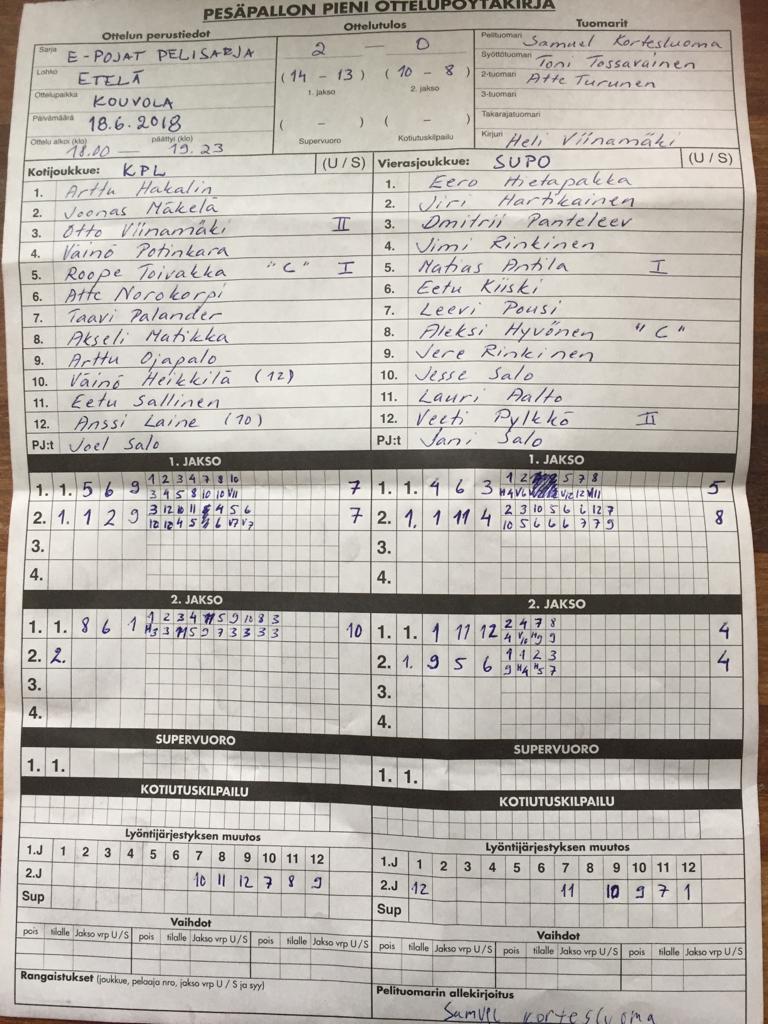 PESÄPALLON PIENI OTTELUPÖYTÄKIRJA
Ottelun perustiedot
Sarja E-POJAT PELISARJA
Lohko ETELÄ
Ottelupaikka KOUVOLA
Päivämäärä 18.6.2018
Ottelu alkoi (klo) päättyi (klo)
18.00 — 19.23
Ottelutulos
2 — 0
(14 - 13) (10 - 8)
1. jakso 2. jakso
( - ) ( - )
Supervuoro Kotiutuskilpailu
Tuomarit
Pelituomari Samuel Kortesluoma
Syöttötuomari Toni Tossavainen
2-tuomari Atte Turunen
3-tuomari
Takarajatuomari
Kirjuri Heli Viinamäki
Kotijoukkue: KPL (U / S)
1. Arttu Hakalin
2. Joonas Mäkelä
3. Otto Viinamäki II
4. Väinö Potinkara
5. Roope Toivakka "C" I
6. Atte Norokorpi
7. Taavi Palander
8. Akseli Matikka
9. Arttu Ojapalo
10. Väinö Heikkilä (12)
11. Eetu Sallinen
12. Anssi Laine (10)
PJ:t Joel Salo
Vierasjoukkue: SUPO (U / S)
1. Eero Hietapakka
2. Jiri Hartikainen
3. Dmitrii Panteleev
4. Jimi Rinkinen
5. Matias Antila I
6. Eetu Kiiski
7. Leevi Pousi
8. Aleksi Hyvönen "C"
9. Jere Rinkinen
10. Jesse Salo
11. Lauri Aalto
12. Veeti Pylkkö II
PJ:t Jani Salo
1. JAKSO
1. 1. 5 6 9 1 2 3 4 7 8 10 7
3 4 5 8 10 10 VII
2. 1. 1 2 9 7
3.
4.
2. JAKSO
1. 1. 8 6 1 1 2 3 4 11 5 9 10 8 3 10
H3 3 11 5 9 7 3 3 3 3
2. 2.
3.
4.
SUPERVUORO
1. 1.
KOTIUTUSKILPAILU
Lyöntijärjestyksen muutos
1.J 1 2 3 4 5 6 7 8 9 10 11 12
2.J 10 11 12 7 8 9
Sup
Vaihdot
pois tilalle Jakso vrp U/S pois tilalle Jakso vrp U/S pois tilalle Jakso vrp U/S
Rangaistukset (joukkue, pelaaja nro, jakso vrp U / S ja syy)
1. JAKSO
1. 1. 4 6 3 5
2. 1. 1 11 4 2 3 10 5 6 6 12 7 8
10 5 6 6 6 7 7 9
3.
4.
2. JAKSO
1. 1. 1 11 12 2 4 7 8 4
2. 1. 9 5 6 1 1 2 3 4
9 H4 H5 7
3.
4.
SUPERVUORO
1. 1.
KOTIUTUSKILPAILU
Lyöntijärjestyksen muutos
1.J 1 2 3 4 5 6 7 8 9 10 11 12
2.J 12 11 10 9 7 1
Sup
Vaihdot
pois tilalle Jakso vrp U/S pois tilalle Jakso vrp U/S pois tilalle Jakso vrp U/S
Pelituomarin allekirjoitus
Samuel Kortesluoma